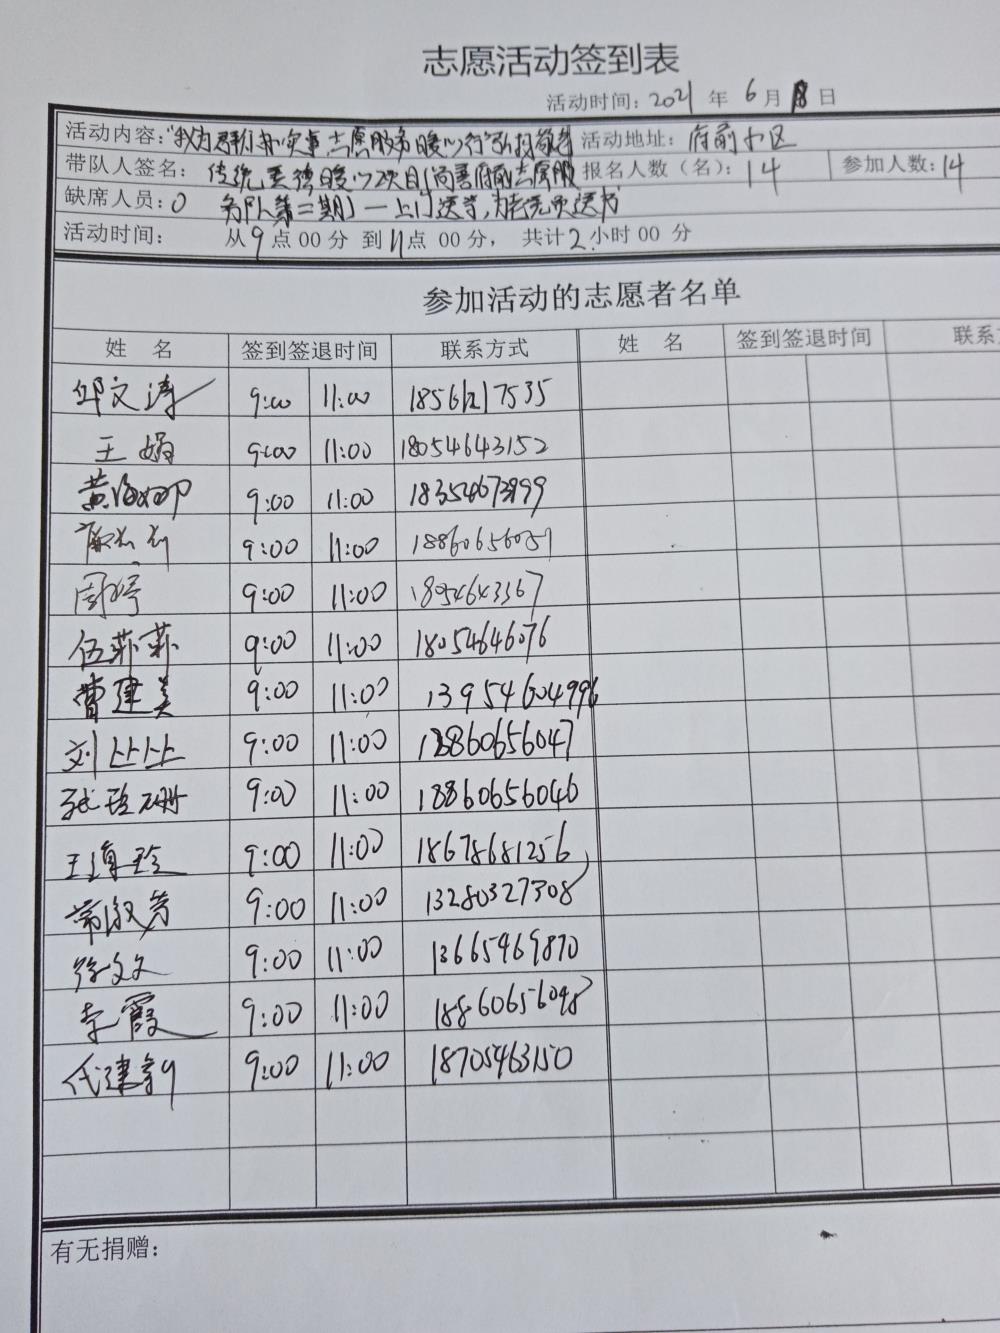 志愿活动签到表
活动时间：2021 年 6 月 8 日
活动内容：“我为群众办实事志愿服务暖心行”弘扬敬老 活动地址：府前小区
带队人签名： 传统美德暖心项目(尚善府前志愿服 报名人数（名）：14 参加人数：14
缺席人员：0 务队第二期)一上门送学，为老党员送书
活动时间： 从 9 点 00 分 到 11 点 00 分， 共计 2 小时 00 分
参加活动的志愿者名单
姓 名 签到签退时间 联系方式 姓 名 签到签退时间 联系
邱文涛 9:00 11:00 18561217535
王娟 9:00 11:00 18054643152
黄海娜 9:00 11:00 18354673999
9:00 11:00
周婷 9:00 11:00 18054643367
伍菲菲 9:00 11:00 18054646076
曹建美 9:00 11:00 13954604996
刘上上 9:00 11:00 18860656047
张珊珊 9:00 11:00 18860656046
王海玲 9:00 11:00 18678681256
常淑芳 9:00 11:00 13280327308
徐文文 9:00 11:00 13665469870
李霞 9:00 11:00 18860656048
代建 9:00 11:00 18705463150
有无捐赠：